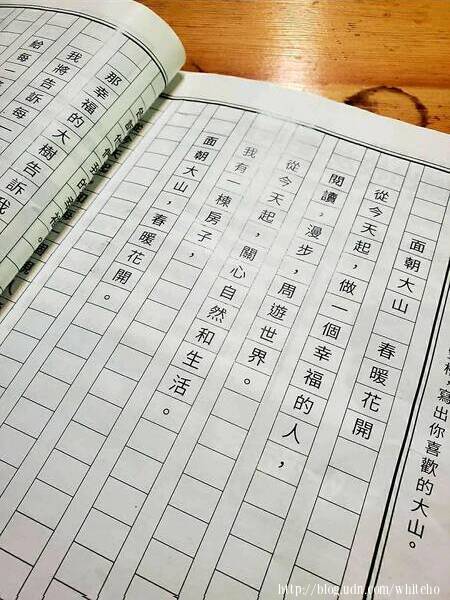 ，寫出你喜歡的大山。
面朝大山　春暖花開
從今天起，做一個幸福的人，
閱讀，漫步，周遊世界。
從今天起，關心自然和生活。
我有一棟房子，
面朝大山，春暖花開。
那幸福的大樹告訴我
我將告訴每一
給每一
http://blog.udn.com/whiteho